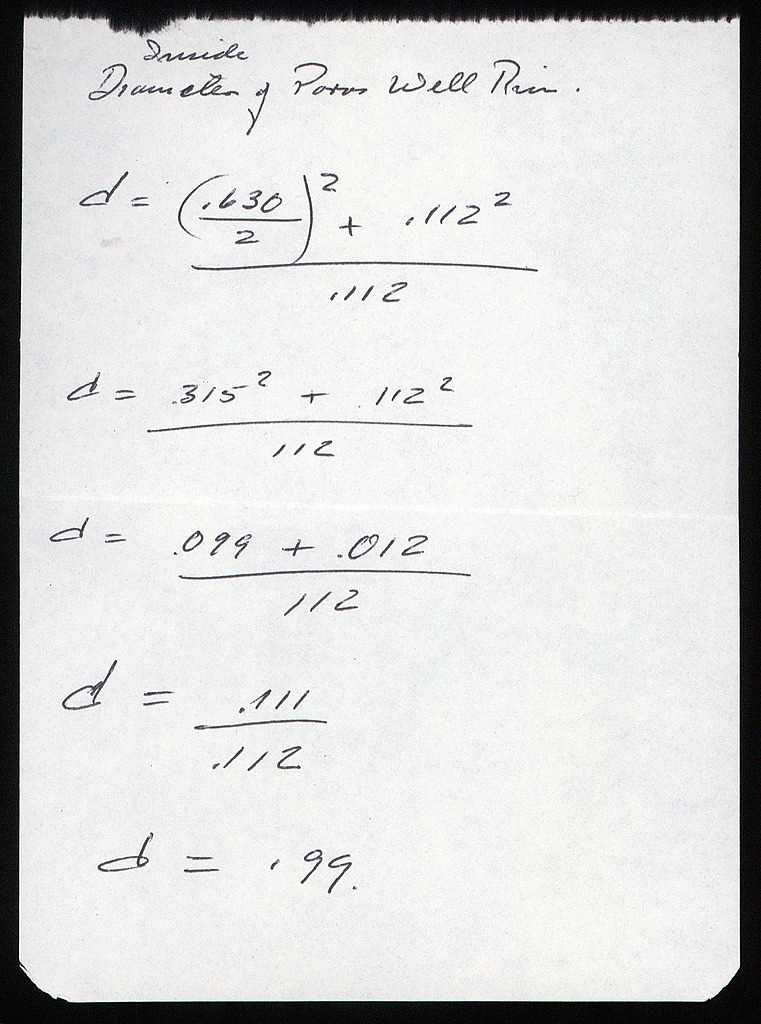 Inside
Diameter of Paros Well Rim.
d = (.630/2)² + .112²
.112
d = .315² + .112²
.112
d = .099 + .012
.112
d = .111
.112
d = .99.